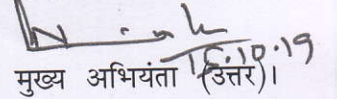 16.10.19
मुख्य अभियंता (उत्तर)।